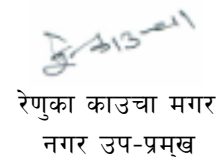 रेणुका काउचा मगर
नगर उप-प्रमुख